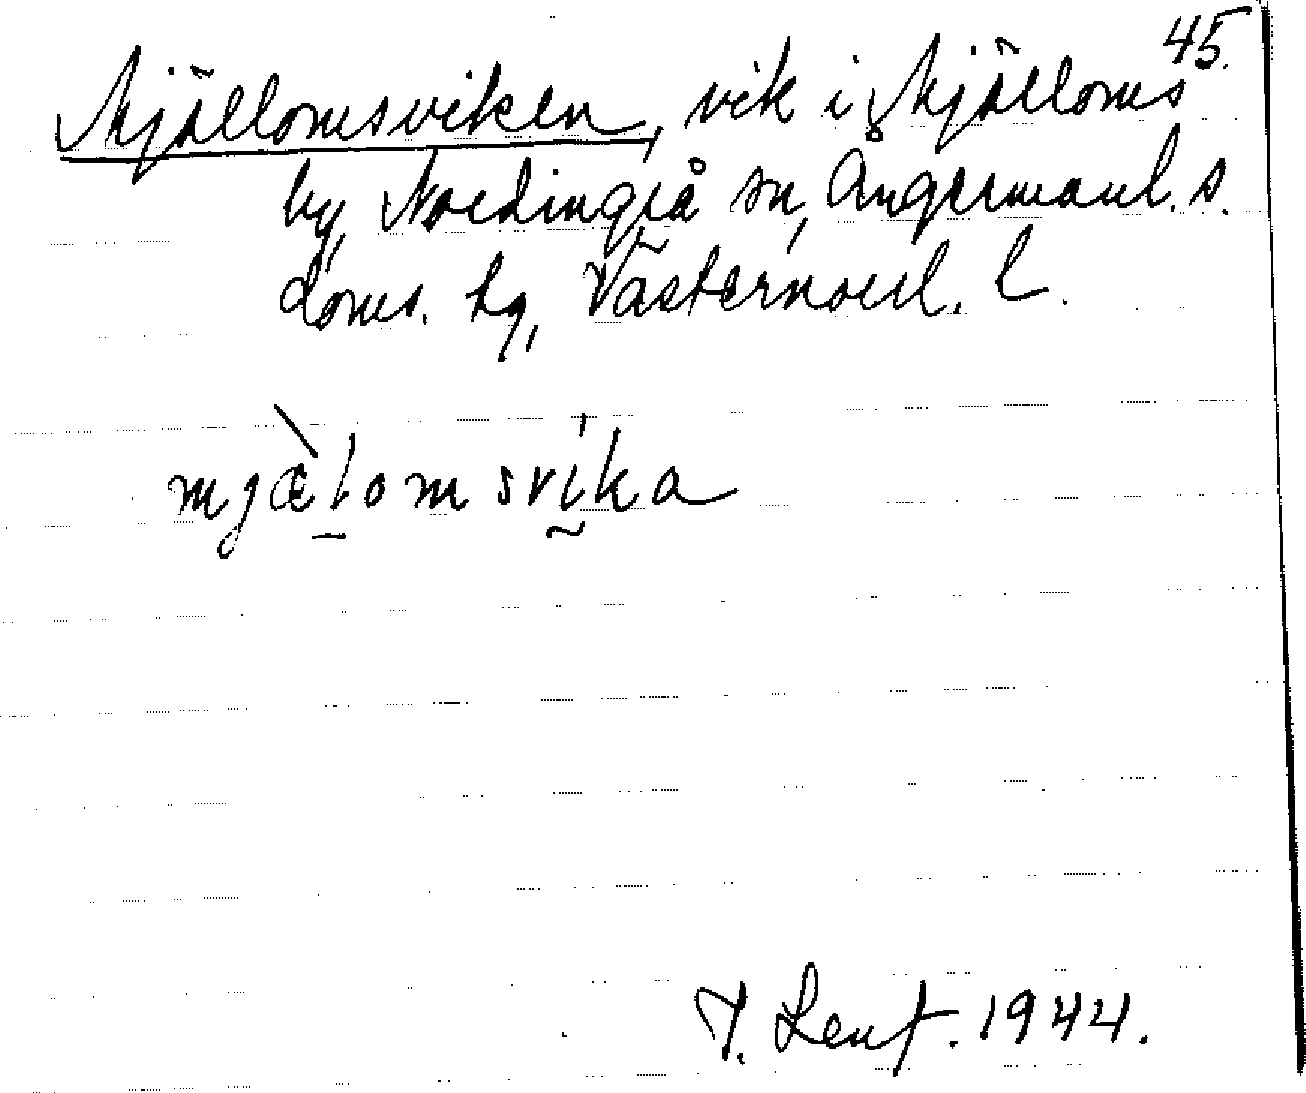 45.
Mjällomsviken, vik i Mjälloms
by, Nordingrå sn, Ångermanl. s.
doms. hg, Västernorrl. l.
mjæ̀lomsvika
J. Lenf. 1944.